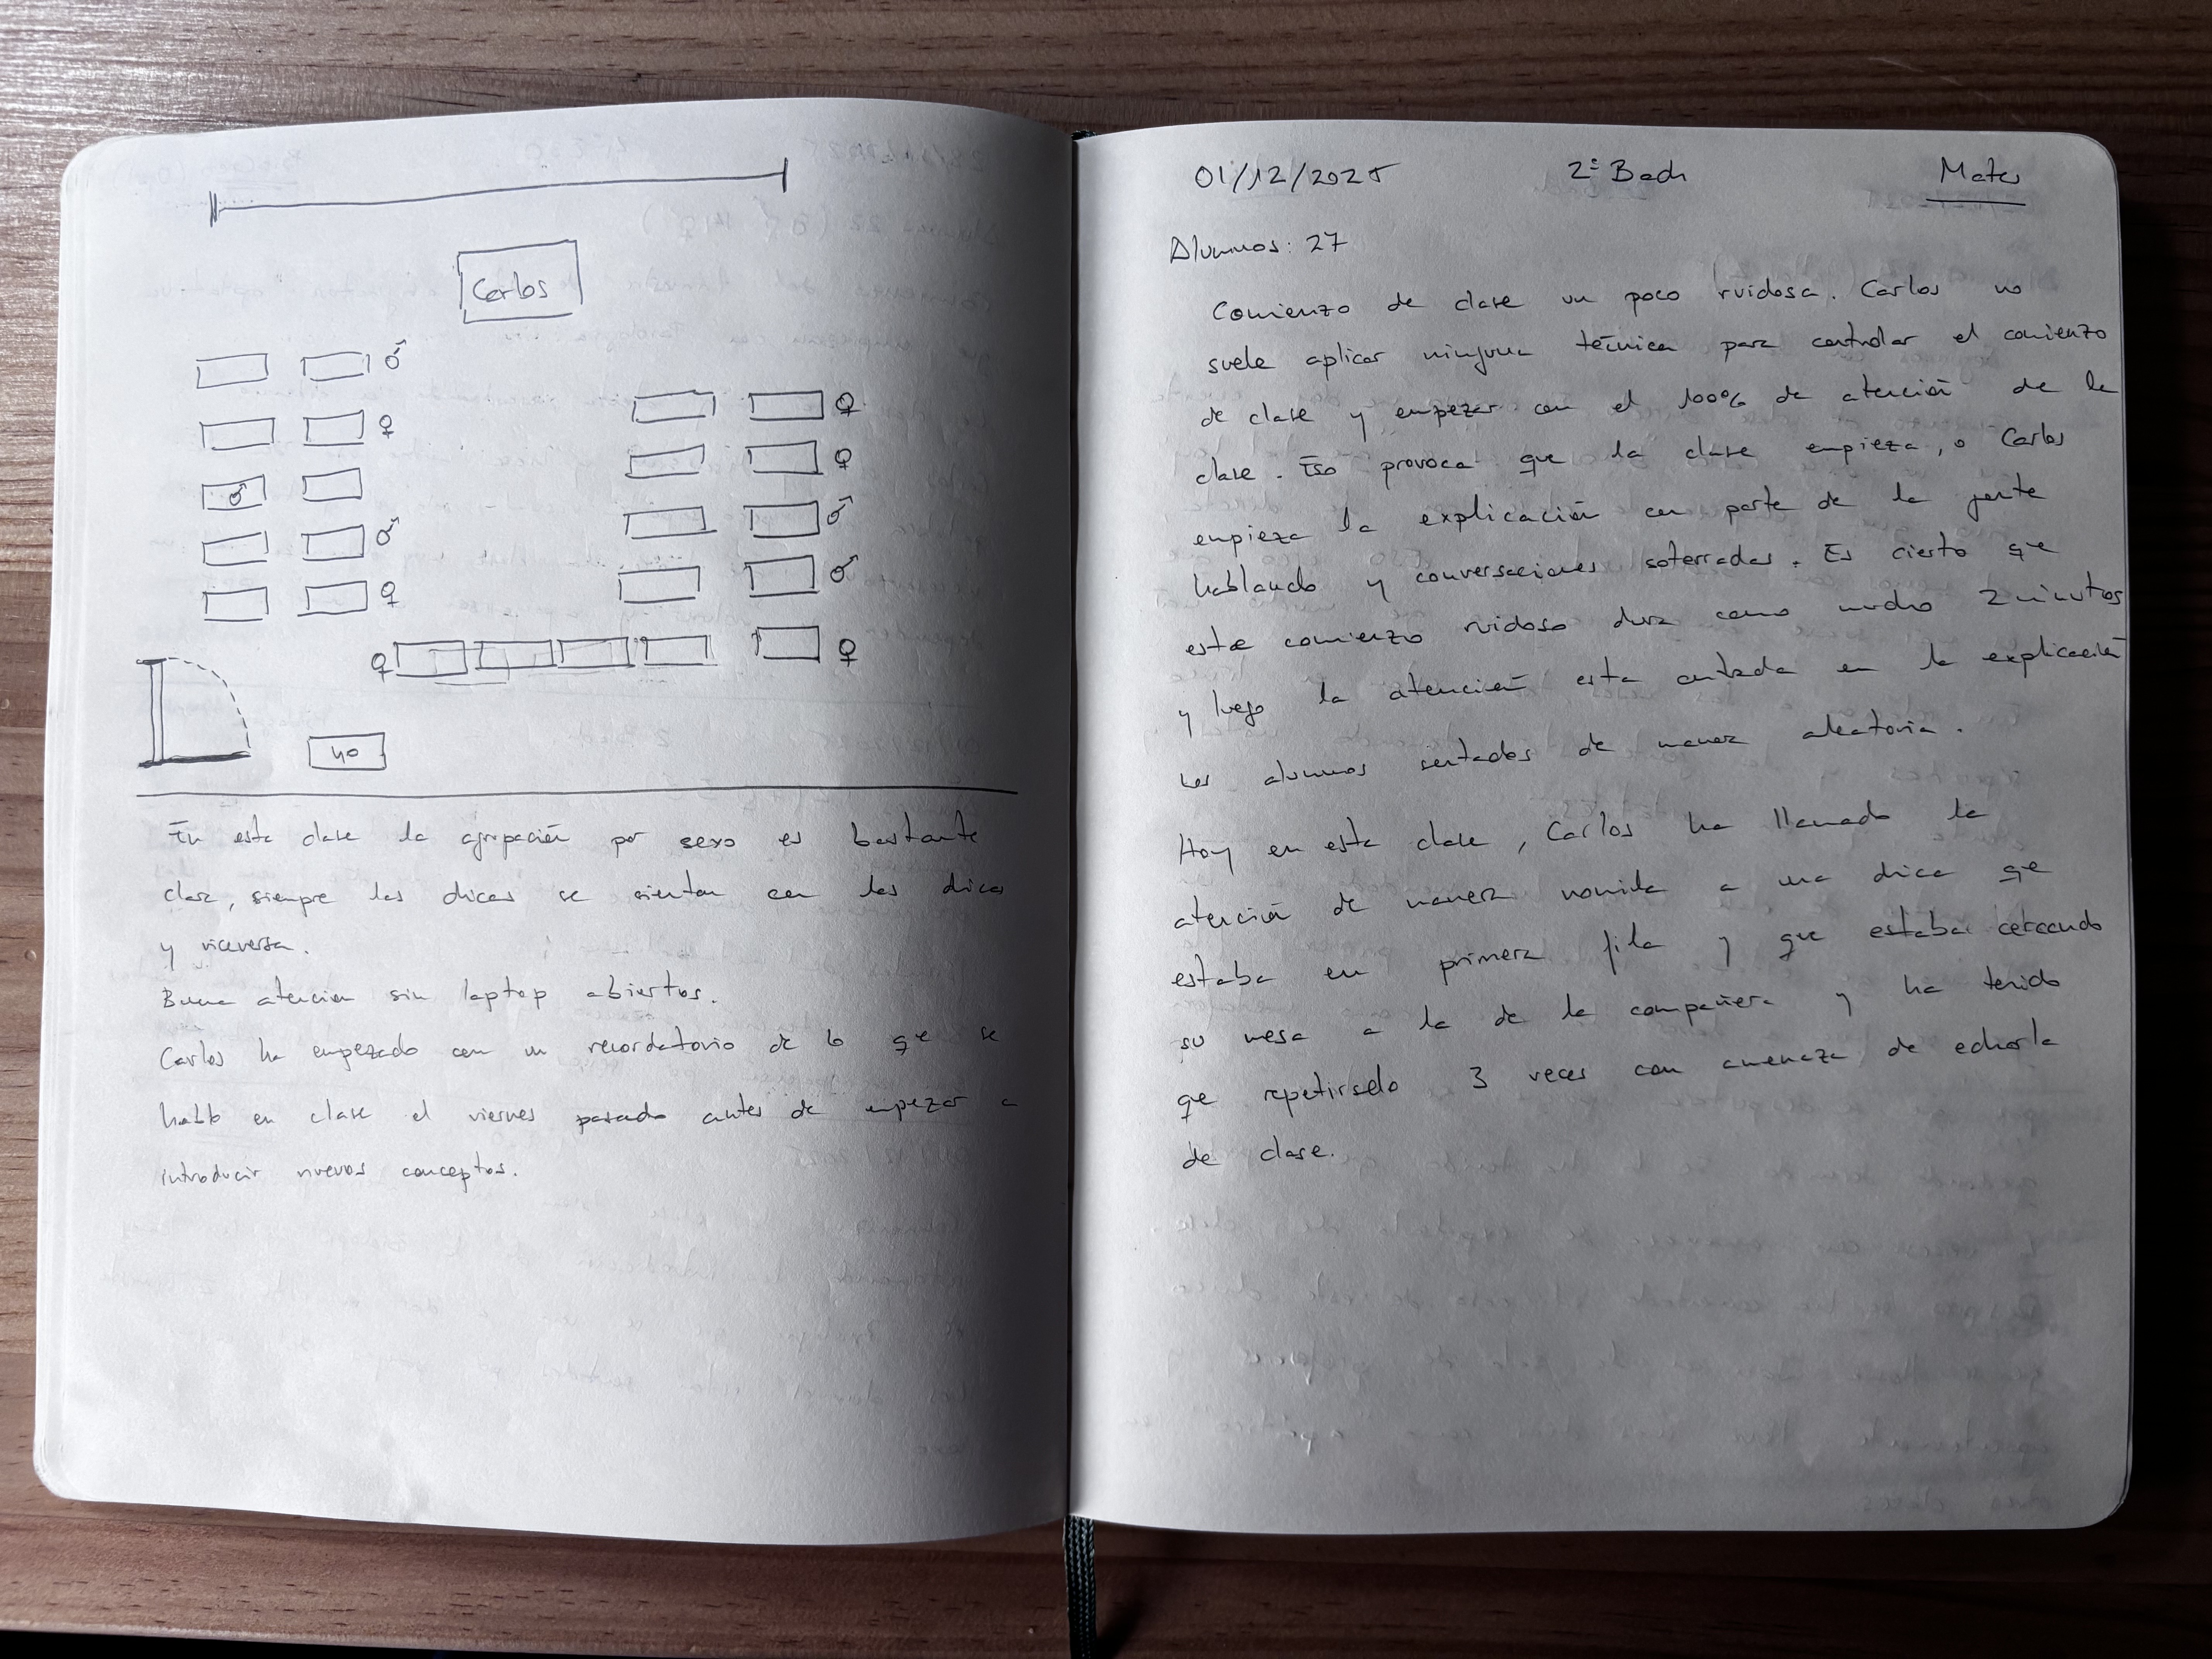 Carlos
♂
♀
♀
♂
♀
♂
♂
♀
♂
♀
♀
yo
En esta clase la agrupación por sexo es bastante
clara, siempre las chicas se sientan con las chicas
y viceversa.
Buena atencion sin laptop abiertos.
Carlos ha empezado con un recordatorio de lo que se
hablo en clase el viernes pasado antes de empezar a
introducir nuevos conceptos.
01/12/2025 2º Bach Mates
Alumnos: 27
Comienzo de clase un poco ruidosa. Carlos no
suele aplicar ninguna técnica para controlar el comienzo
de clase y empezar con el 100% de atención de la
clase. Eso provoca que la clase empieza, o Carlos
empieza la explicación con parte de la gente
hablando y conversaciones soterradas. Es cierto que
este comienzo ruidoso dura como mucho 2 minutos
y luego la atención esta centrada en la explicación
Los alumnos sentados de manera aleatoria.
Hoy en esta clase, Carlos ha llamado la
atención de manera a una chica que
estaba en primera fila y que estaba cercando
su mesa a la de la compañera y ha tenido
que repetirselo 3 veces con amenaza de echarla
de clase.